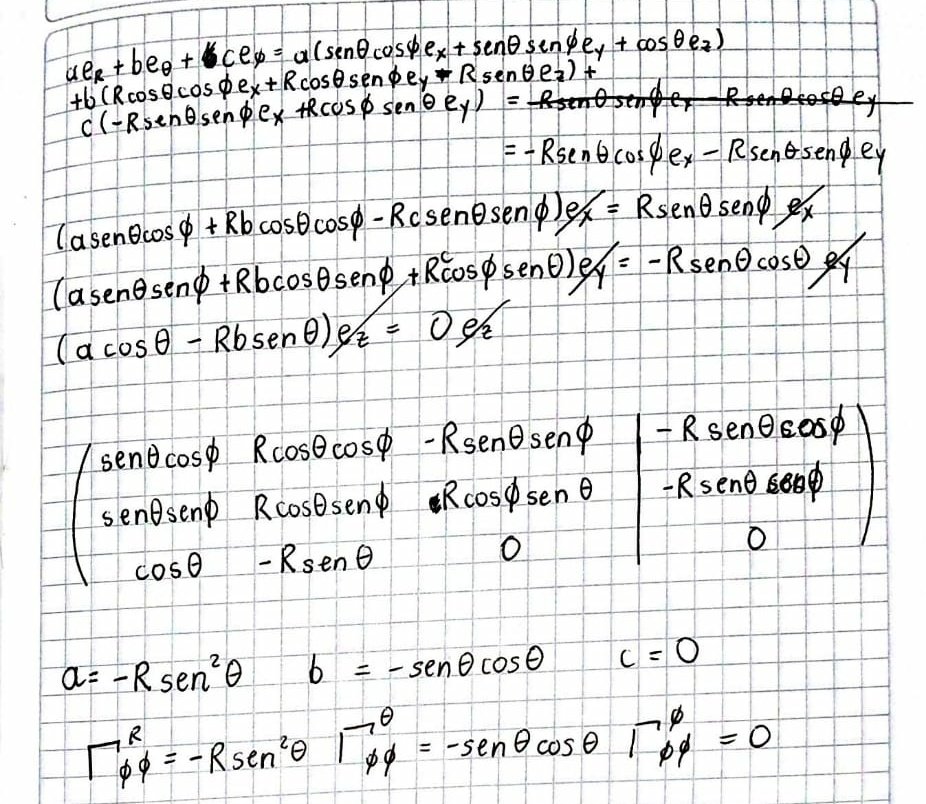 ae_R + be_θ + ce_φ = a(senθcosφe_x + senθ senφe_y + cosθe_z)
+b(Rcosθcosφe_x + Rcosθsenφe_y - Rsenθe_z) +
c(-Rsenθsenφe_x +Rcosφ senθ e_y) = -Rsenθsenφe_x - Rsenθcosθe_y
= -Rsenθcosφe_x - Rsenθsenφe_y
(asenθcosφ + Rbcosθcosφ - Rcsenθsenφ)e_x = Rsenθsenφ e_x
(asenθsenφ + Rbcosθsenφ + Rccosφsenθ)e_y = -Rsenθcosθ e_y
(a cosθ - Rbsenθ)e_z = 0 e_z
senθcosφ Rcosθcosφ -Rsenθsenφ | -Rsenθcosφ
senθsenφ Rcosθsenφ Rcosφsenθ | -Rsenθsenφ
cosθ -Rsenθ 0 | 0
a = -Rsen²θ b = -senθcosθ c = 0
Γ^R_φφ = -Rsen²θ Γ^θ_φφ = -senθcosθ Γ^φ_φφ = 0